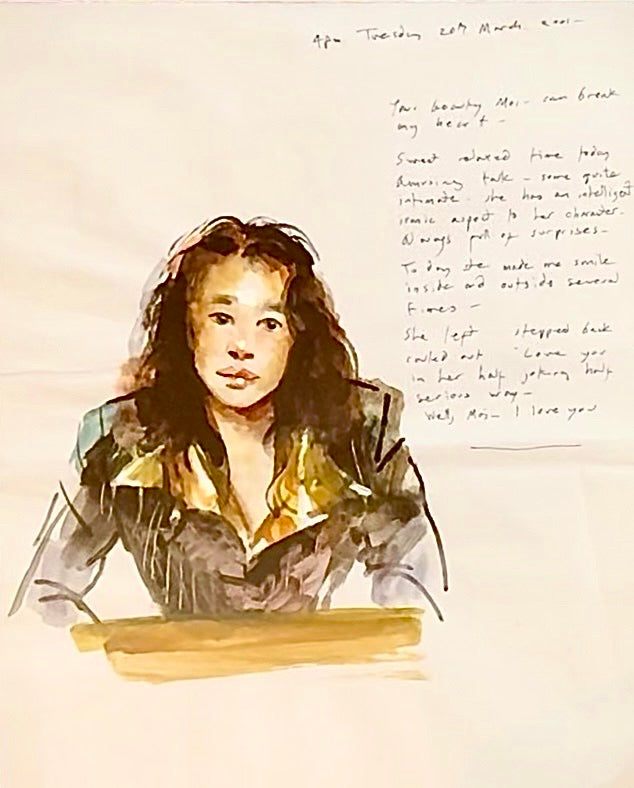 4pm Tuesday 20th March 2001 -
Your beauty Moi - can break
my heart -
Sweet relaxed time today
Amusing talk - some quite
intimate - she has an intelligent
ironic aspect to her character.
Always full of surprises -
Today she made me smile
inside and outside several
times -
She left stepped back
called out "Love you
in her half joking half
serious way -
Well, Moi - I love you